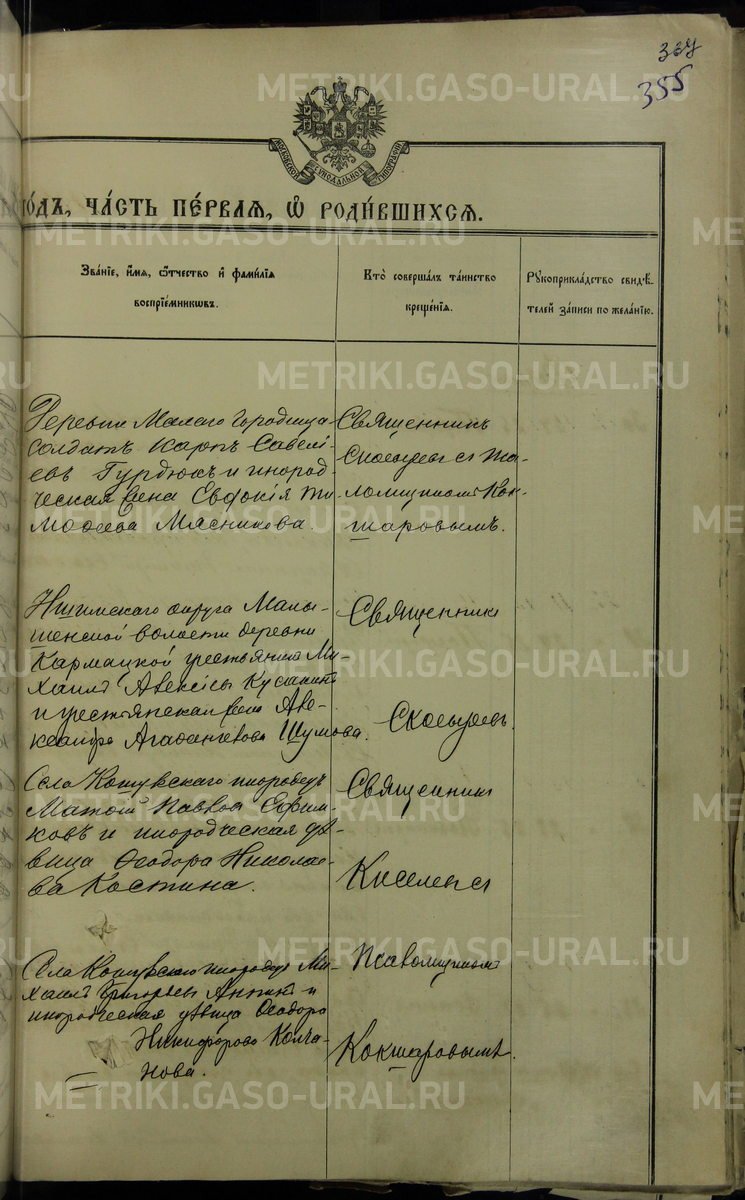 355
МОСКОВСКОЙ СѴНОДАЛЬНОЙ ТИПОГРАФІИ
го́дъ, ча́сть пе́рвая, ѡ҆ роди́вшихся.
Зва́нїе, и҆́мя, ѻ҆́тчество и҆ фами́лїя
воспрїе́мникѡвъ.
Кто̀ соверша́лъ та́инство
креще́нїя.
Рꙋкоприкла́дство свидѣ́-
телей за́писи по жела́нїю.
Деревни Малаго Городища
солдатъ Карпъ Савелі-
евъ Гурдюкъ и инород-
ческая жена Евдокія Ти
моѳеева Мясникова.
Священникъ
съ Пса-
ломщикомъ Кок-
шаровымъ.
Ишимскаго округа Малы-
шенской волости деревни
Кармацкой крестьянинъ Ми-
хаилъ Алексѣевъ
и крестьянская жена Але-
ксандра Агаѳангелова Шумова.
Священникъ
Села Кошукскаго инородецъ
Матѳей Павловъ Ефим-
ковъ и инородческая дѣ-
вица Ѳеодора Николае-
ва Костина.
Священникъ
Киселевъ съ
Села Кошукскаго инородецъ Ми-
хаилъ Григорьевъ и
инородческая дѣвица Ѳеодора
Никифорова Колча-
нова.
Псаломщикомъ
Кокшаровымъ.
METRIKI.GASO-URAL.RU